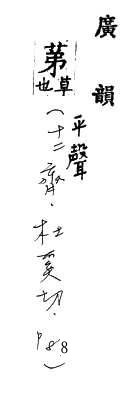 廣韻
平聲
苐
草也
(十二齊.杜奚切.P88)